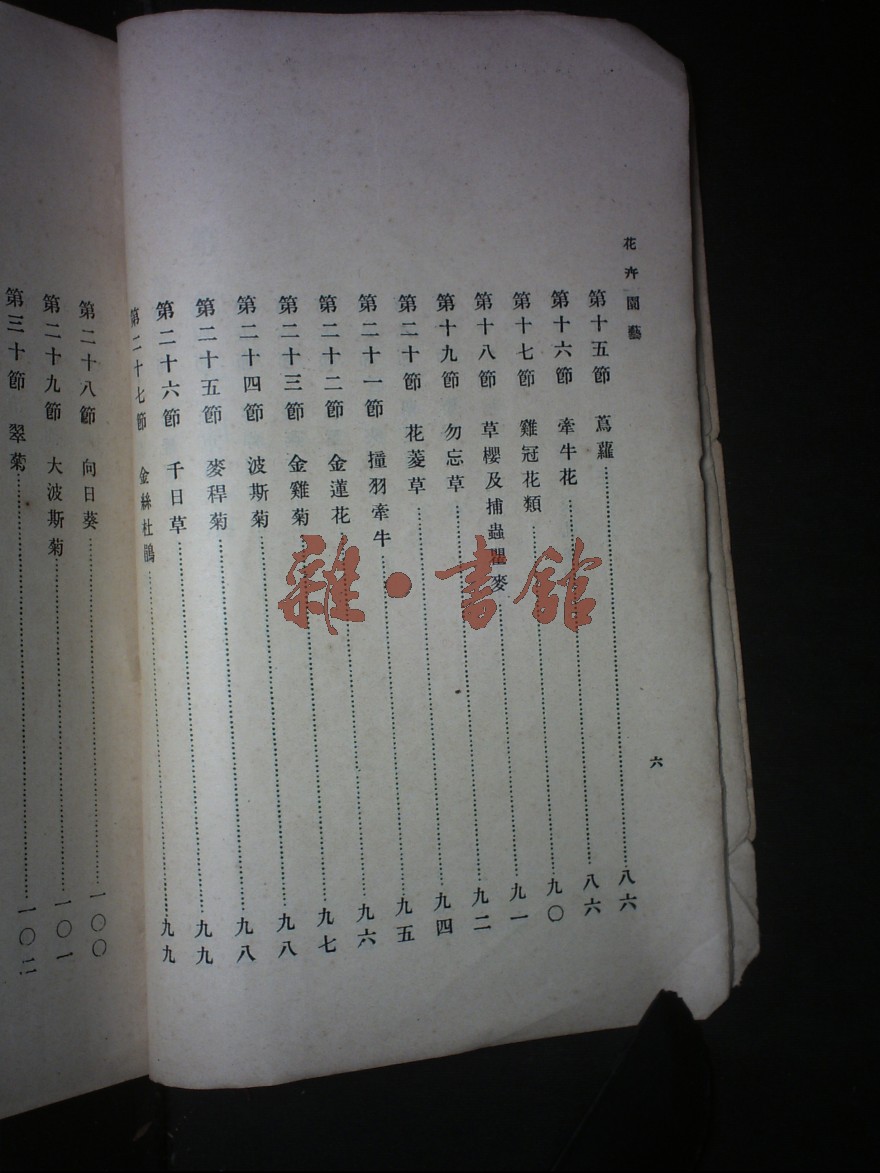 花卉園藝
六
第十五節 蔦蘿……八六
第十六節 牽牛花……八六
第十七節 雞冠花類……九〇
第十八節 草櫻及捕蟲瞿麥……九一
第十九節 勿忘草……九二
第二十節 花菱草……九四
第二十一節 撞羽牽牛……九五
第二十二節 金蓮花……九六
第二十三節 金雞菊……九七
第二十四節 波斯菊……九八
第二十五節 麥稈菊……九八
第二十六節 千日草……九九
第二十七節 金絲杜鵑……九九
第二十八節 向日葵……一〇〇
第二十九節 大波斯菊……一〇一
第三十節 翠菊……一〇二
雜·書館